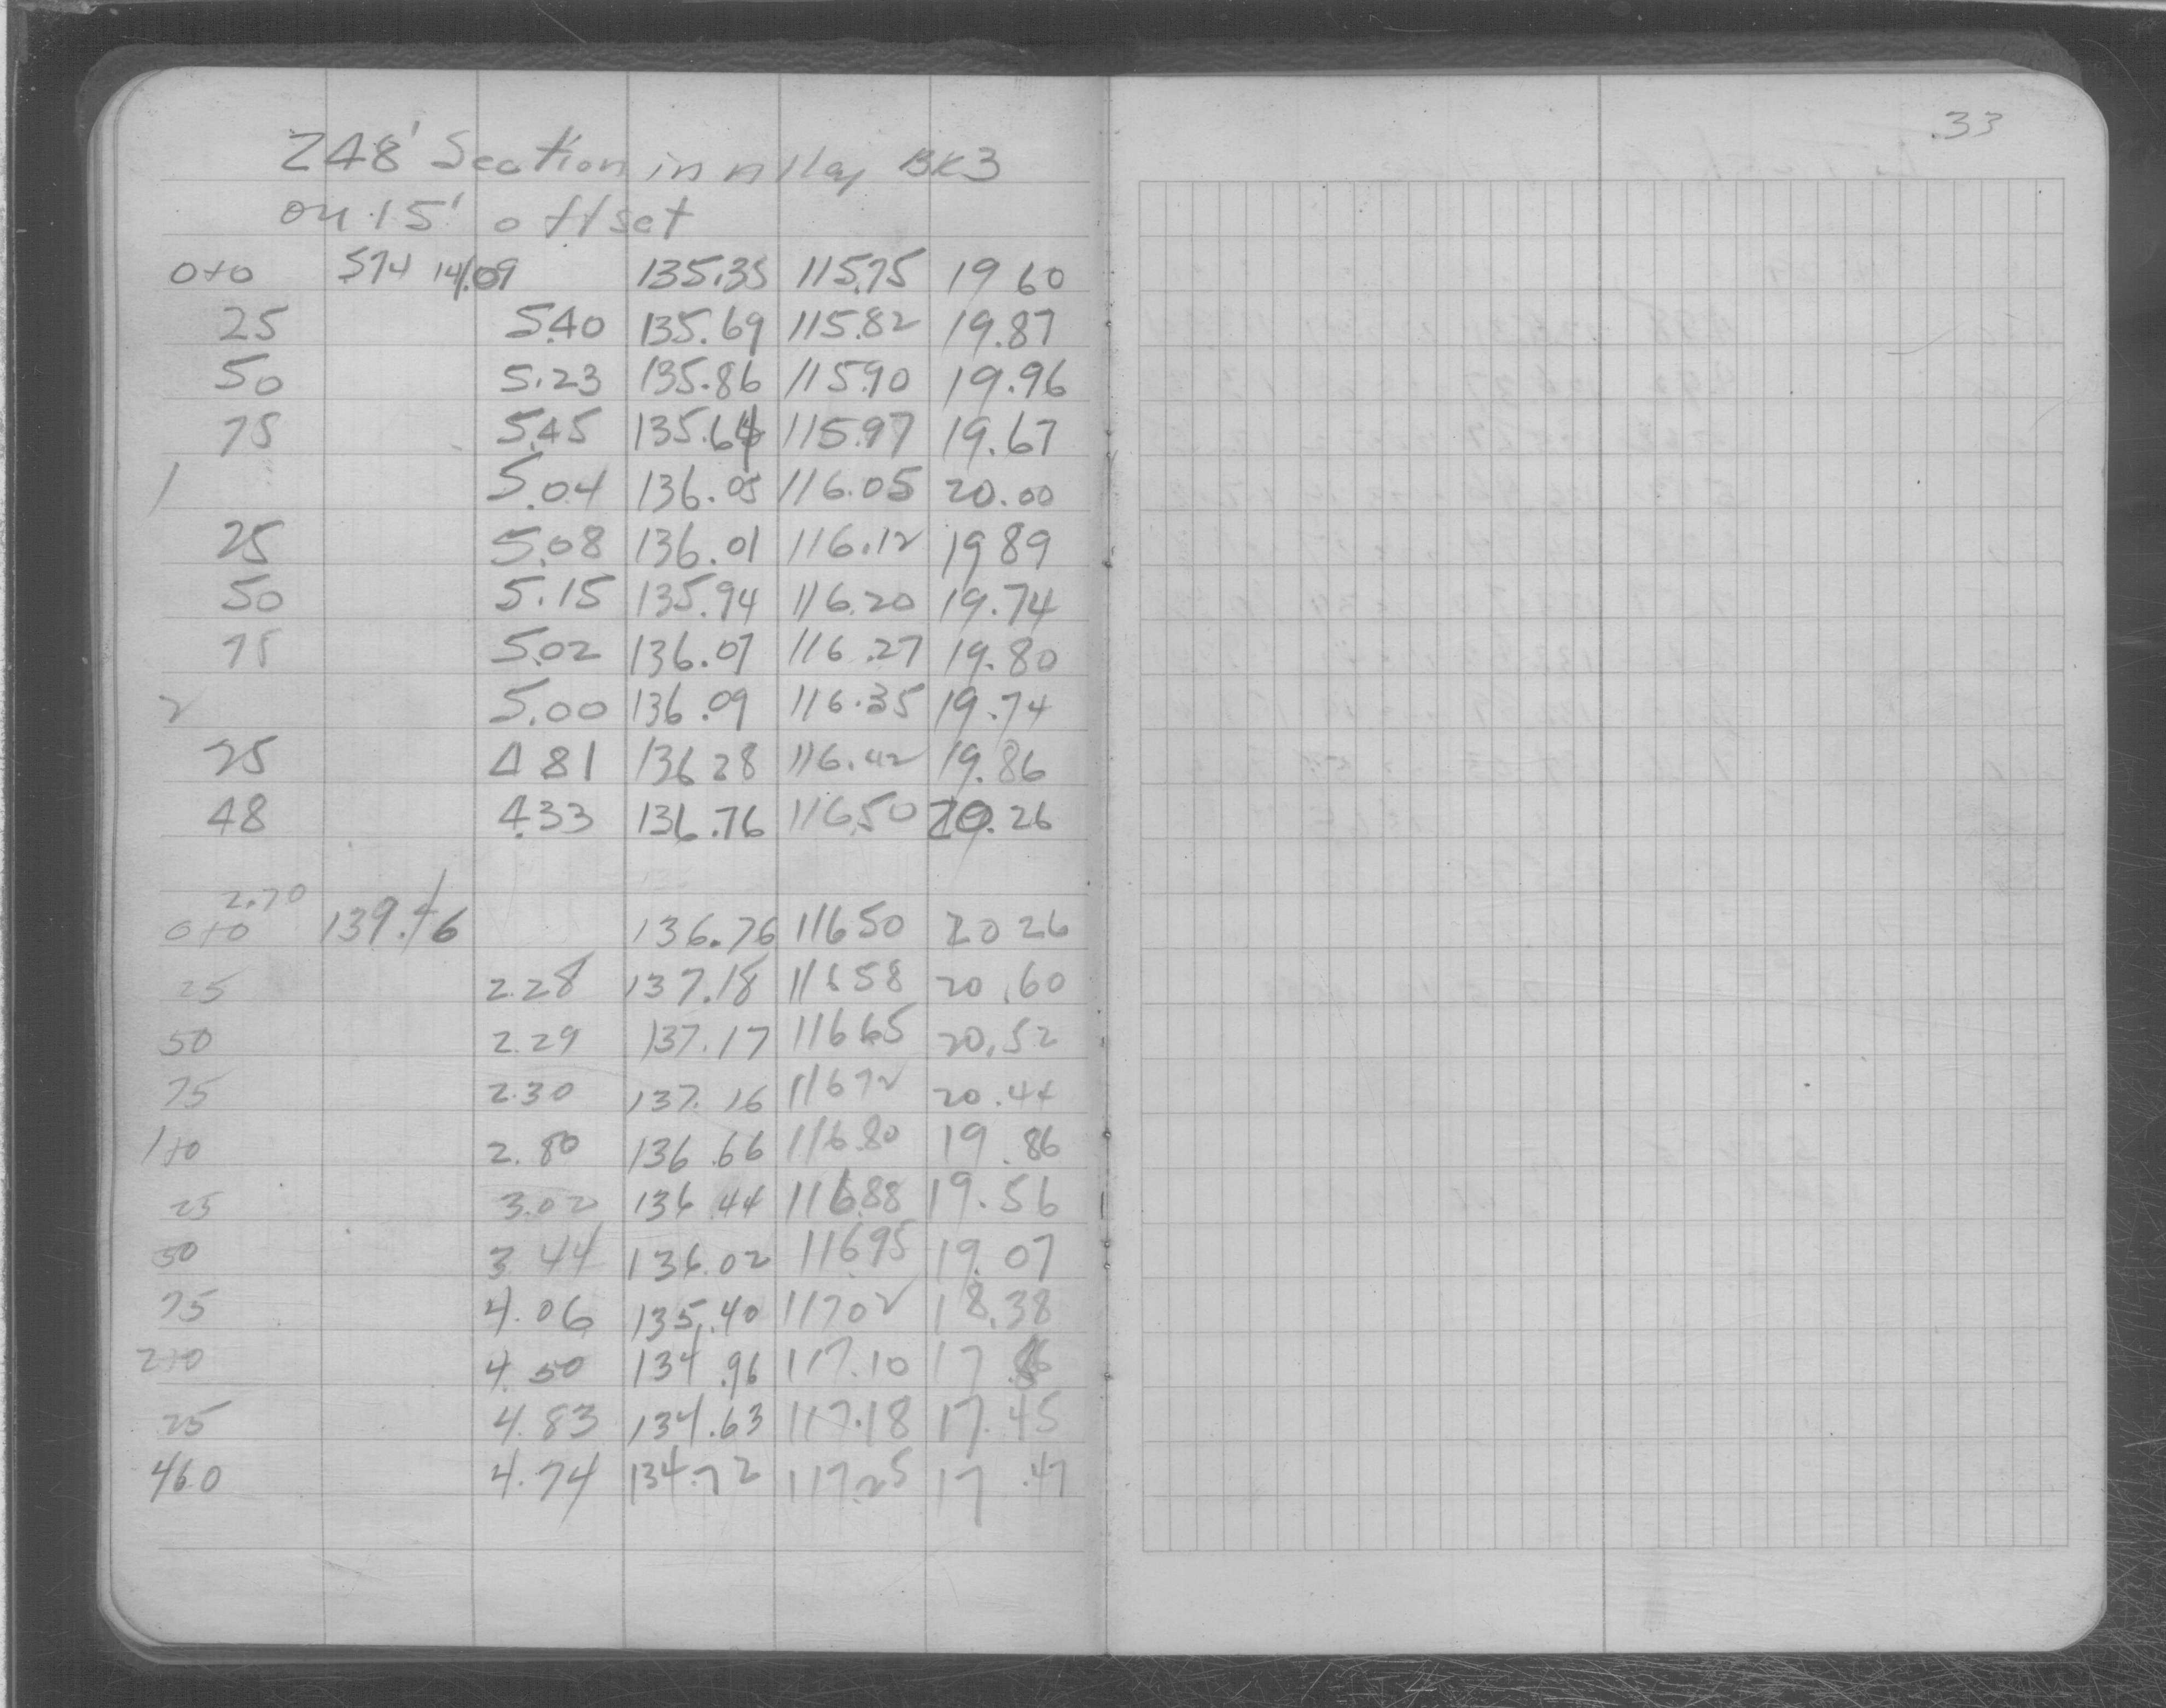 248' Section in Alley BK3
on 15' offset
0+0 574 141.09 135.35 115.75 19 60
25 5.40 135.69 115.82 19.87
50 5.23 135.86 115.90 19.96
75 5.45 135.64 115.97 19.67
1 5.04 136.05 116.05 20.00
25 5.08 136.01 116.12 19 89
50 5.15 135.94 116.20 19.74
75 5.02 136.07 116.27 19.80
2 5.00 136.09 116.35 19.74
25 4 81 136 28 116.42 19.86
48 4.33 136.76 116.50 20.26
2.70
0+0 139.46 136.76 116 50 20 26
25 2.28 137.18 116 58 20.60
50 2.29 137.17 116.65 20.52
75 2.30 137.16 116 72 20.44
1+0 2.80 136.66 116.80 19.86
25 3.02 136 44 116.88 19.56
50 3 44 136.02 116.95 19.07
75 4.06 135.40 117 02 18.38
2+0 4.50 134.96 117.10 17.86
25 4.83 134.63 117.18 17.45
46.0 4.74 134.72 117.25 17.47
.33